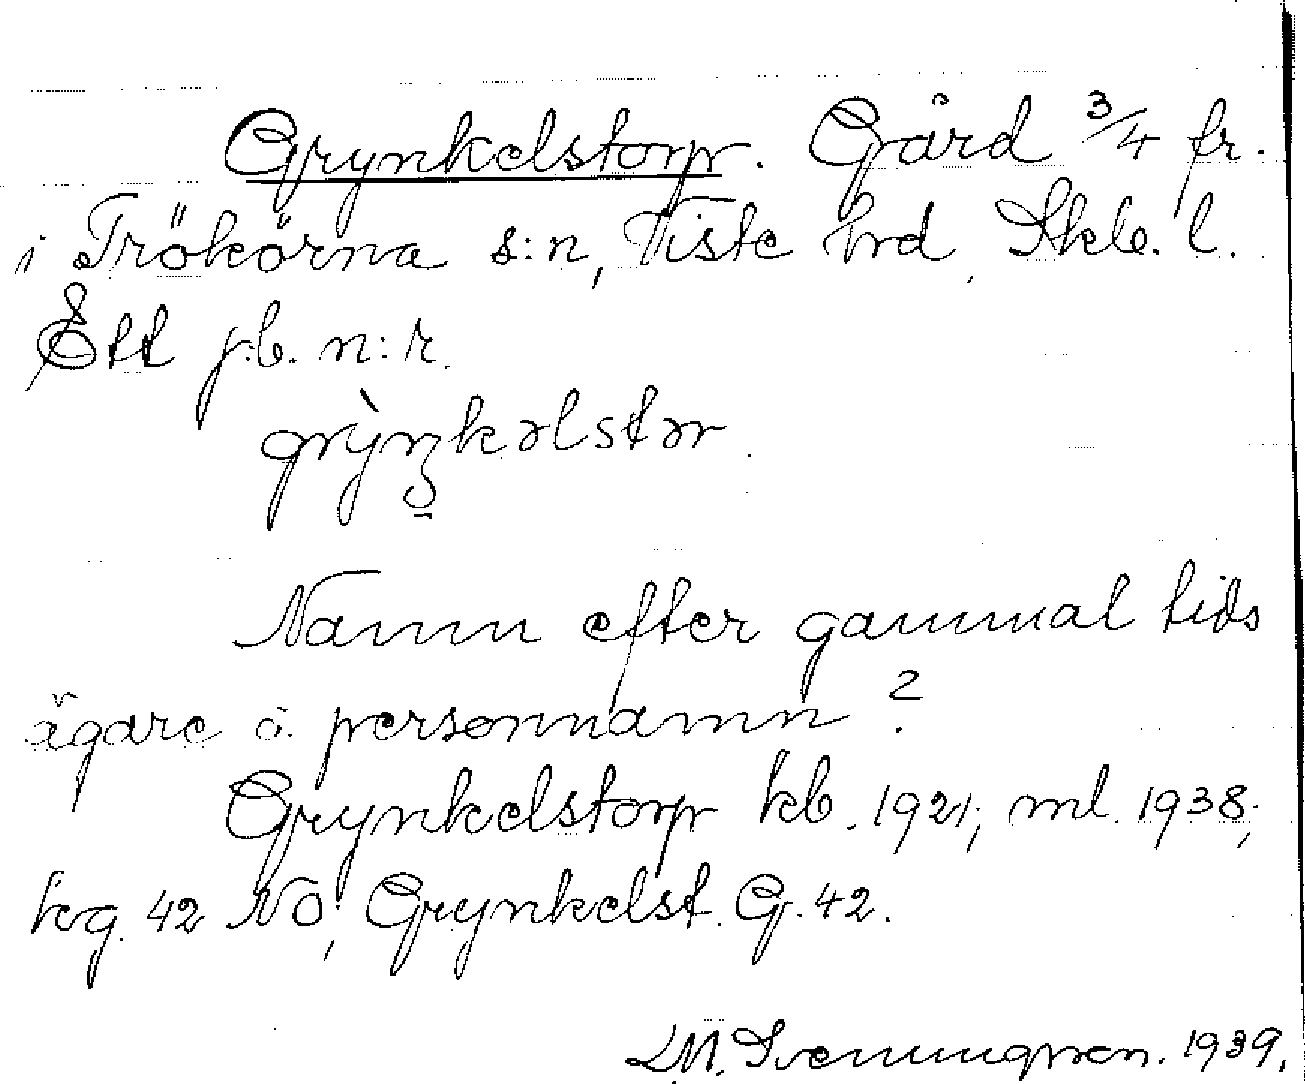 Grynkelstorp. Gård 3/4 fr.
i Trökörna s:n, Viste hrd, Skb. l.
Ett j.b. n:r.
grỳŋkəlstər.
Namn efter gammal tids
ägare o. personnamn?
Grynkelstorp kb. 1921; ml. 1938;
hög. 42 NO, Grynkelst. G. 42.
LM. Svenungsson. 1939.